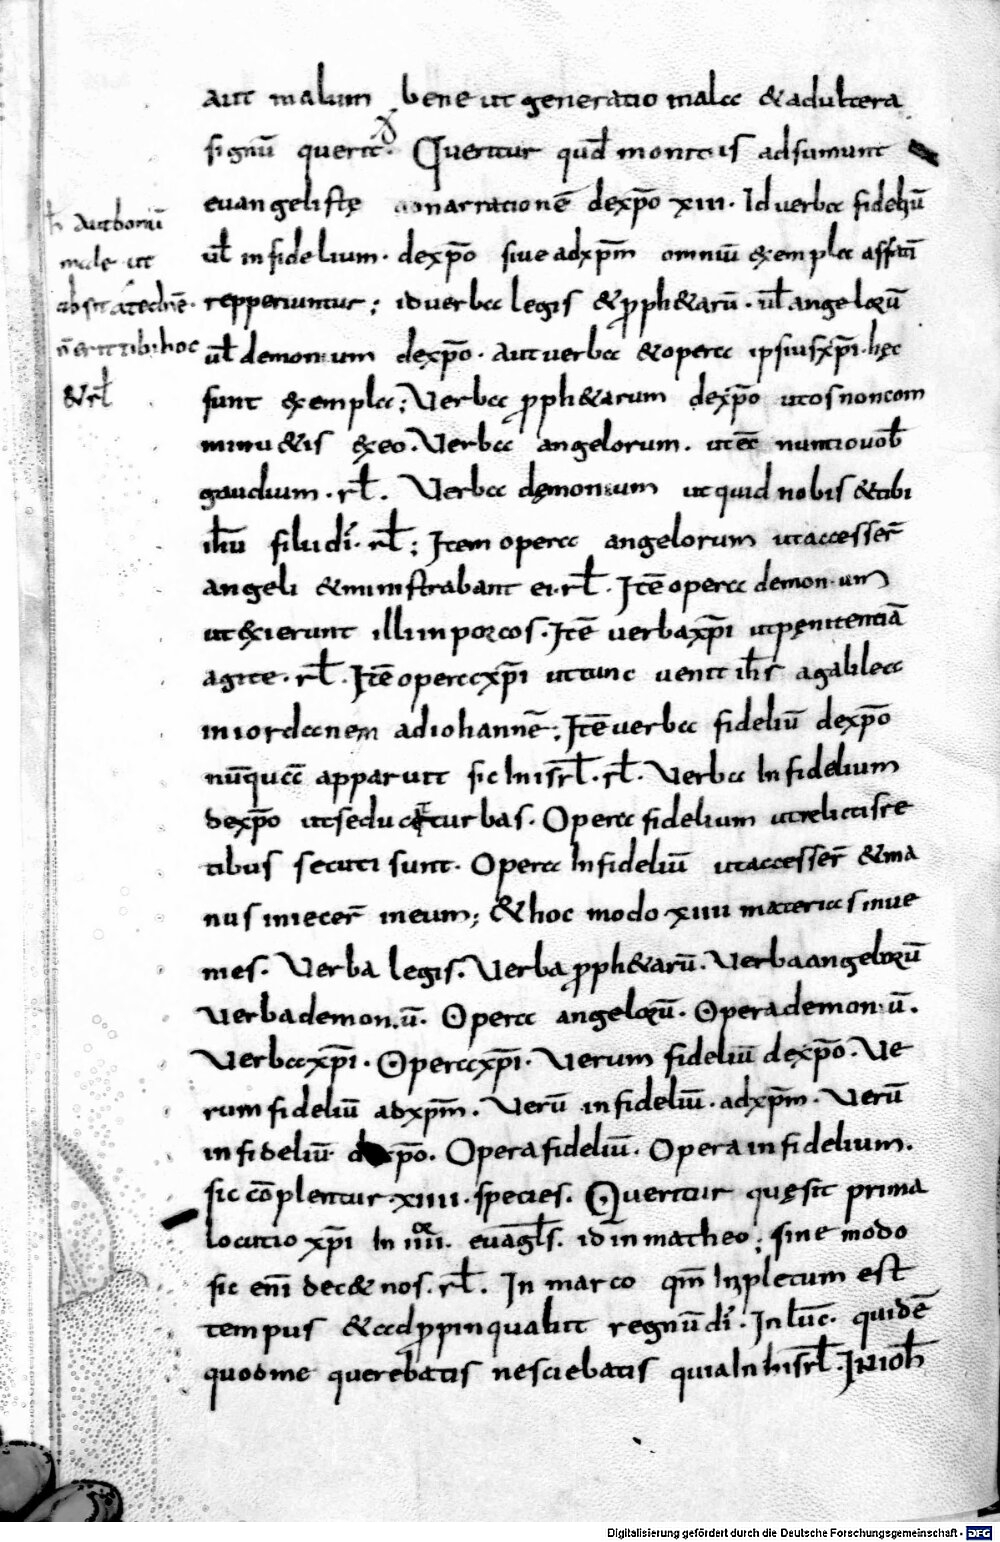 aut malum bene ut generatio mala & adultera
signū querit. Queritur qud̄ montis adsumunt
euangelistę narrationē dexp̄o xiii. Id uerba fideliū
ul̄ infidelium. dexp̄o siue adxp̄m omniū exempla
repperiuntur; iduerba legis & pph&arū. ul̄ angelorū
ul̄ demonium dexp̄o. Aut uerba & opera ipsius xp̄i. hęc
sunt exempla; Verba pph&arum dexp̄o utosnoncom
minu&is exeo. Verba angelorum. utec̄ nuntiouob̄
gaudium. rl̄. Verba dęmonium ut quid nobis & tibi
ih̄u filii dī. rl̄; Item opera angelorum utaccesser̄
angeli & ministrabant ei. rl̄. Itē opera demonium
ut exierunt illi inporcos. Itē uerbaxp̄i utpęnitentiā
agite. rl̄. Itē operaxp̄i uttunc uenit ih̄s agalilea
iniordanem adiohannē; Itē uerba fideliū dexp̄o
nūquā apparuit sic inisrl̄. rl̄. Verba Infidelium
dexp̄o utseducit turbas. Opera fidelium utrelictisre
tibus secuti sunt. Opera Infideliū utaccesser̄ & ma
nus iniecer̄ ineum; & hoc modo xiiii materias inue
nies. Verba legis. Verba pph&arū. Verba angelorū
Verba demoniū. Opera angelorū. Opera demoniū.
Verbaxp̄i. Operaxp̄i. Verum fideliū dexp̄o. Ve
rum fideliū adxp̄m. Verū infideliū. adxp̄m. Verū
infideliū dexp̄o. Opera fideliū. Opera infidelium.
sic cōplentur xiiii. species. Queritur quęsit prima
locutio xp̄i In iiii. euāgl̄s. id inmatheo; sine modo
sic enī dec& nos. rl̄. In marco qm̄ Inpletum est
tempus & adppinquabit regnū dī. In luc̄. quidē
quodme querebatis nesciebatis quiaIn hisrl̄. Inioh̄
h̄ Authoriū
male ut
absit atechnē.
n̄ erit tibi hoc
& rl̄
Digitalisierung gefördert durch die Deutsche Forschungsgemeinschaft - DFG